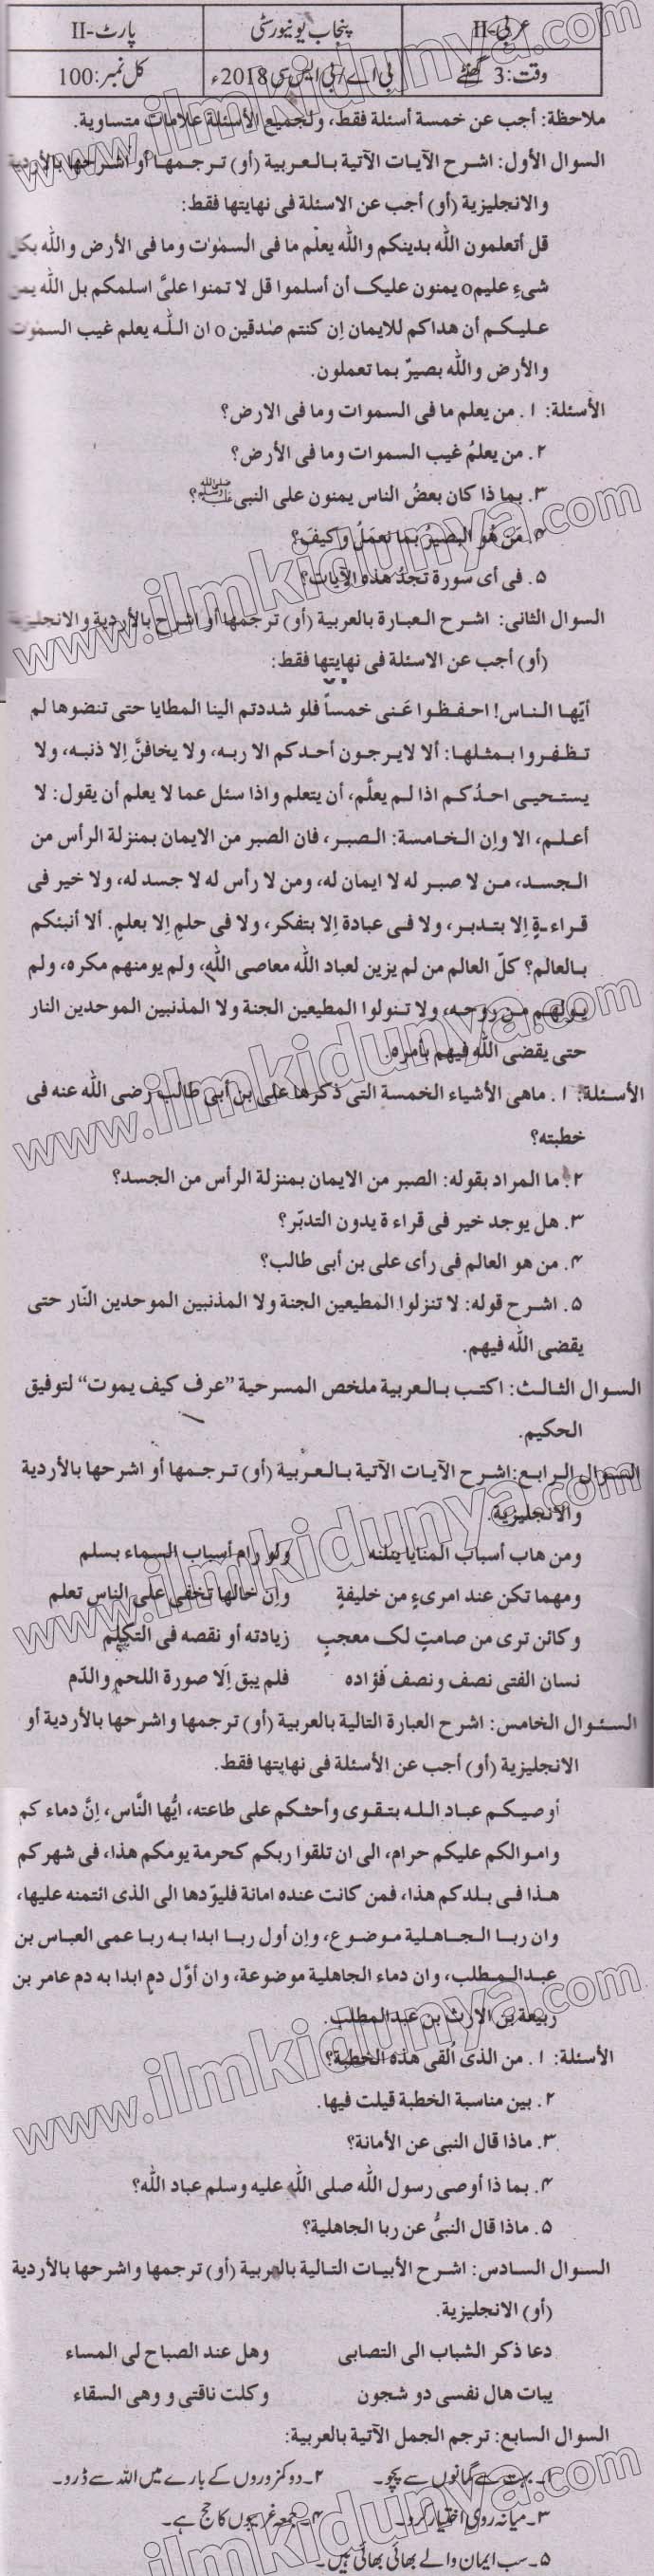 عربی-II
پنجاب یونیورسٹی
پارٹ-II
وقت: 3 گھنٹے
بی اے/بی ایس سی 2018ء
کل نمبر: 100
ملاحظة: أجب عن خمسة أسئلة فقط، ولجميع الأسئلة علامات متساوية.
السوال الأول: اشرح الآيات الآتية بالعربية (أو) ترجمها أو اشرحها بالأردية
والانجليزية (أو) أجب عن الاسئلة فى نهايتها فقط:
قل أتعلمون الله بدينكم والله يعلم ما فى السمٰوٰت وما فى الأرض والله بكل
شىءٍ عليمo يمنون عليك أن أسلموا قل لا تمنوا علىَّ اسلمكم بل الله يمن
عليكم أن هداكم للايمان إن كنتم صٰدقين o ان الله يعلم غيب السمٰوت
والأرض والله بصيرٌ بما تعملون.
الأسئلة: ١. من يعلم ما فى السموات وما فى الارض؟
٢. من يعلمُ غيب السموات وما فى الأرض؟
٣. بما ذا كان بعضُ الناس يمنون على النبى ﷺ؟
۴. من هُو البصيرُ بما نعمَلُ وكيفَ؟
۵. فى أى سورة تجدُ هذه الآيات؟
السوال الثانى: اشرح العبارة بالعربية (أو) ترجمها أو اشرح بالأردية والانجليزية
(أو) أجب عن الاسئلة فى نهايتها فقط:
أيّها الناس! احفظوا عَنى خمساً فلو شددتم الينا المطايا حتى تنضوها لم
تظفروا بمثلها: ألا لايرجون أحدكم الا ربه، ولا يخافنَّ إلا ذنبه، ولا
يستحيى احدُكم اذا لم يعلَّم، أن يتعلم واذا سئل عما لا يعلم أن يقول: لا
أعلم، الا وإن الخامسة: الصبر، فان الصبر من الايمان بمنزلة الرأس من
الجسد، من لا صبر له لا ايمان له، ومن لا رأس له لا جسد له، ولا خير فى
قراءةٍ إلا بتدبر، ولا فى عبادة إلا بتفكر، ولا فى حلمٍ إلا بعلمٍ. ألا أنبئكم
بالعالم؟ كلّ العالم من لم يزين لعباد الله معاصى الله، ولم يومنهم مكره، ولم
يولهم من روحه، ولا تنولوا المطيعين الجنة ولا المذنبين الموحدين النار
حتى يقضى الله فيهم بأمره.
الأسئلة: ١. ماهى الأشياء الخمسة التى ذكرها على بن أبى طالب رضى الله عنه فى
خطبته؟
٢. ما المراد بقوله: الصبر من الايمان بمنزلة الرأس من الجسد؟
٣. هل يوجد خير فى قراءة يدون التدبّر؟
۴. من هو العالم فى رأى على بن أبى طالب؟
۵. اشرح قوله: لا تنزلوا المطيعين الجنة ولا المذنبين الموحدين النّار حتى
يقضى الله فيهم.
السوال الثالث: اكتب بالعربية ملخص المسرحية "عرف كيف يموت" لتوفيق
الحكيم.
السوال الرابع: اشرح الآيات الآتية بالعربية (أو) ترجمها أو اشرحها بالأردية
والانجليزية.
ومن هاب أسباب المنايا ينلنه ولو رام أسباب السماء بسلم
ومهما تكن عند امرىءٍ من خليفةٍ وإن خالها تخفى على الناس تعلم
وكائن ترى من صامتٍ لك معجبٍ زيادته أو نقصه فى التكلم
نسان الفتى نصف ونصف فؤاده فلم يبق إلا صورة اللحم والدّم
السئوال الخامس: اشرح العبارة التالية بالعربية (أو) ترجمها واشرحها بالأردية أو
الانجليزية (أو) أجب عن الأسئلة فى نهايتها فقط.
أوصيكم عباد الله بتقوى وأحثكم على طاعته، ايُّها النَّاس، إنَّ دماءكم
واموالكم عليكم حرام، الى ان تلقوا ربكم كحرمة يومكم هذا، فى شهركم
هذا فى بلدكم هذا، فمن كانت عنده امانة فليؤدها الى الذى ائتمنه عليها،
وان ربا الجاهلية موضوع، وإن أول ربا ابدا به ربا عمى العباس بن
عبدالمطلب، وان دماء الجاهلية موضوعة، وان أوّل دمٍ ابدا به دم عامر بن
ربيعة بن الارث بن عبدالمطلب.
الأسئلة: ١. من الذى ألقى هذه الخطبة؟
٢. بين مناسبة الخطبة قيلت فيها.
٣. ماذا قال النبى عن الأمانة؟
۴. بما ذا أوصى رسول الله صلى الله عليه وسلم عباد الله؟
۵. ماذا قال النبىُّ عن ربا الجاهلية؟
السوال السادس: اشرح الأبيات التالية بالعربية (أو) ترجمها واشرحها بالأردية
(أو) الانجليزية.
دعا ذكر الشباب الى التصابى وهل عند الصباح لى المساء
يبات هال نفسى دو شجون وكلت ناقتى و وهى السقاء
السوال السابع: ترجم الجمل الآتية بالعربية:
۱۔ بہت سے گمانوں سے بچو۔ ۲۔ دو کمزوروں کے بارے میں اللہ سے ڈرو۔
۳۔ میانہ روی اختیار کرو۔ ۴۔ جمعہ غریبوں کا حج ہے۔
۵۔ سب ایمان والے بھائی بھائی ہیں۔
www.ilmkidunya.com
www.ilmkidunya.com
www.ilmkidunya.com
www.ilmkidunya.com
www.ilmkidunya.com
www.ilmkidunya.com